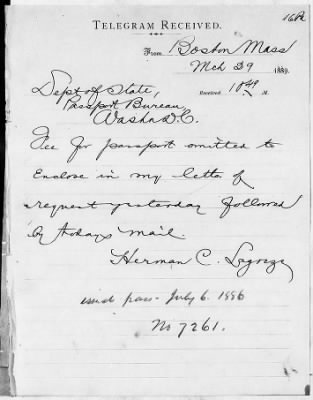 168
TELEGRAM RECEIVED.
From Boston Mass
Mch 29 1889.
Dept of State, Received 10 49 M.
Passport Bureau,
Washn D.C.
Fee for passport omitted to
enclose in my letter of
request yesterday followed
by todays mail.
Herman C.
issued pass - July 6. 1886
No 7261.